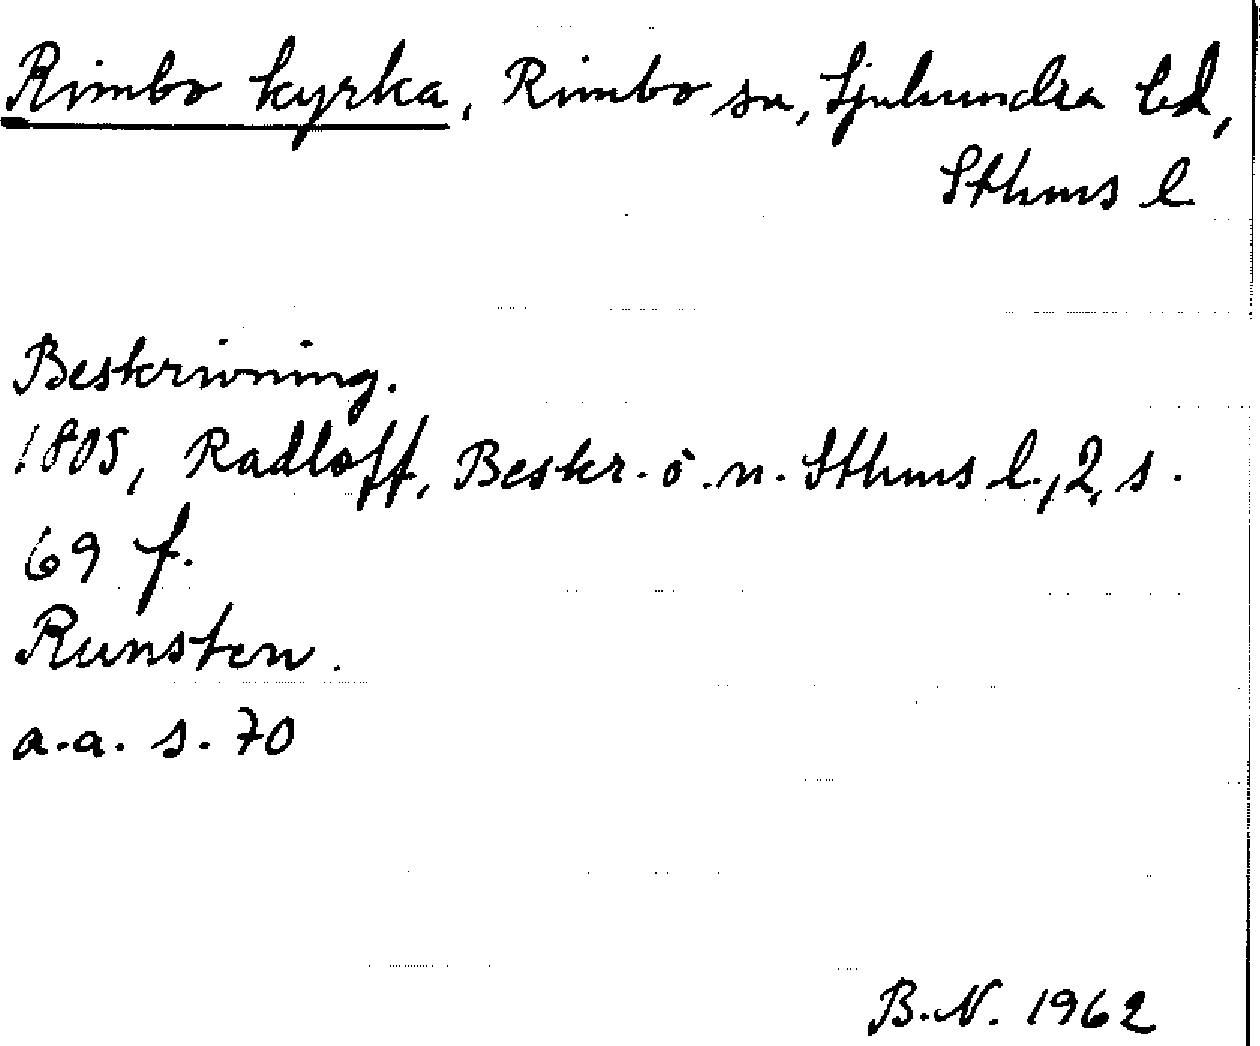 Rimbo kyrka, Rimbo sn, Sjuhundra hd,
Sthms l
Beskrivning.
1805, Radloff, Beskr. ö. n. Sthms l., 2, s.
69 f.
Runsten.
a.a. s. 70
B.N. 1962